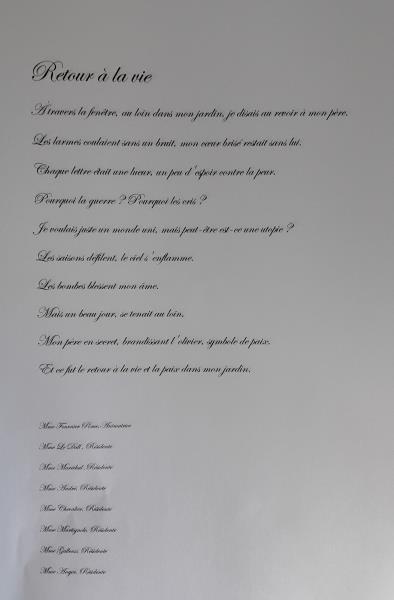 Retour à la vie
À travers la fenêtre, au loin dans mon jardin, je disais au revoir à mon père.
Les larmes coulaient sans un bruit, mon cœur brisé restait sans lui.
Chaque lettre était une lueur, un peu d'espoir contre la peur.
Pourquoi la guerre ? Pourquoi les cris ?
Je voulais juste un monde uni, mais peut-être est-ce une utopie ?
Les saisons défilent, le ciel s'enflamme.
Les bombes blessent mon âme.
Mais un beau jour, se tenait au loin,
Mon père en secret, brandissant l'olivier, symbole de paix.
Et ce fut le retour à la vie et la paix dans mon jardin.
Mme Fournier Animatrice
Mme Le Résidente
Mme Maréchal, Résidente
Mme André, Résidente
Mme Chevalier, Résidente
Mme Résidente
Mme Résidente
Mme Résidente